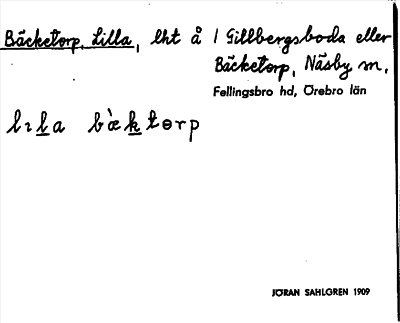 Bäcketorp, Lilla, lht å 1 Gillbergsboda eller
Bäcketorp, Näsby sn,
Fellingsbro hd, Örebro län
lɩla bæ̀ktɵrp
JÖRAN SAHLGREN 1909